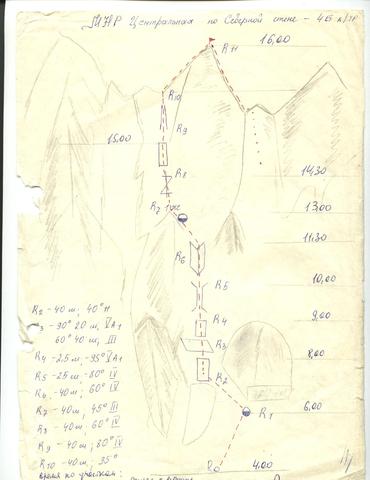 МАР Центральная по Северной стене - 4Б к/тр
R11
16,00
R10
R9
15.00
R8
14,30
R7
13,00
11,30
R6
10,00
R5
9,00
R4
R3
8,00
R2
6,00
R1
R0
4.00
R2 - 40 м; 40° II
R3 - 90° 20 м, V A1
60° 40 м, III
R4 - 25 м, - 95° V A1
R5 - 25 м - 80° IV
R6 - 40 м; 60° IV
R7 - 40 м, 45° III
R8 - 40 м, 60° IV
R9 - 40 м; 80° IV
R10 - 40 м; 35°
время по участкам: